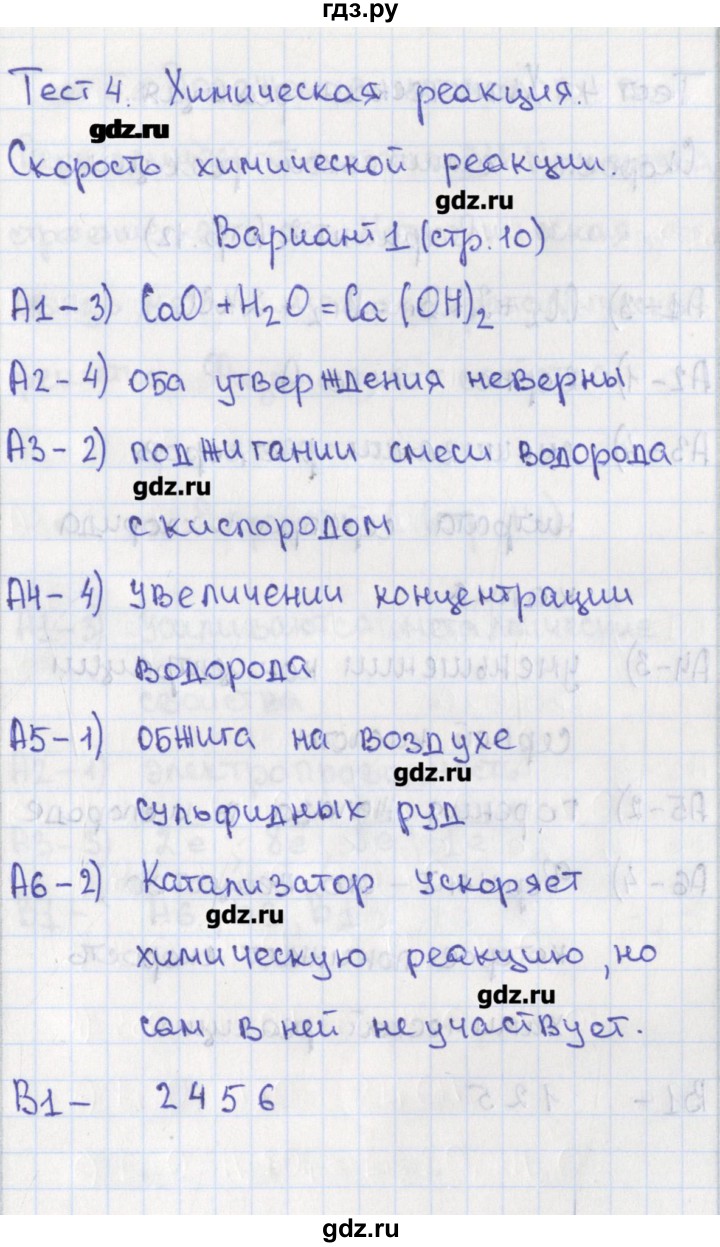 гдз.ру
Тест 4. Химическая реакция.
gdz.ru
Скорость химической реакции.
gdz.ru
Вариант 1 (стр. 10)
А1 – 3) CaO + H₂O = Ca(OH)₂
А2 – 4) оба утверждения неверны
А3 – 2) поджигании смеси водорода
gdz.ru
с кислородом
А4 – 4) увеличении концентрации
водорода
А5 – 1) обжига на воздухе
gdz.ru
сульфидных руд
А6 – 2) Катализатор ускоряет
gdz.ru
химическую реакцию, но
gdz.ru
сам в ней не участвует.
В1 – 2 4 5 6
gdz.ru